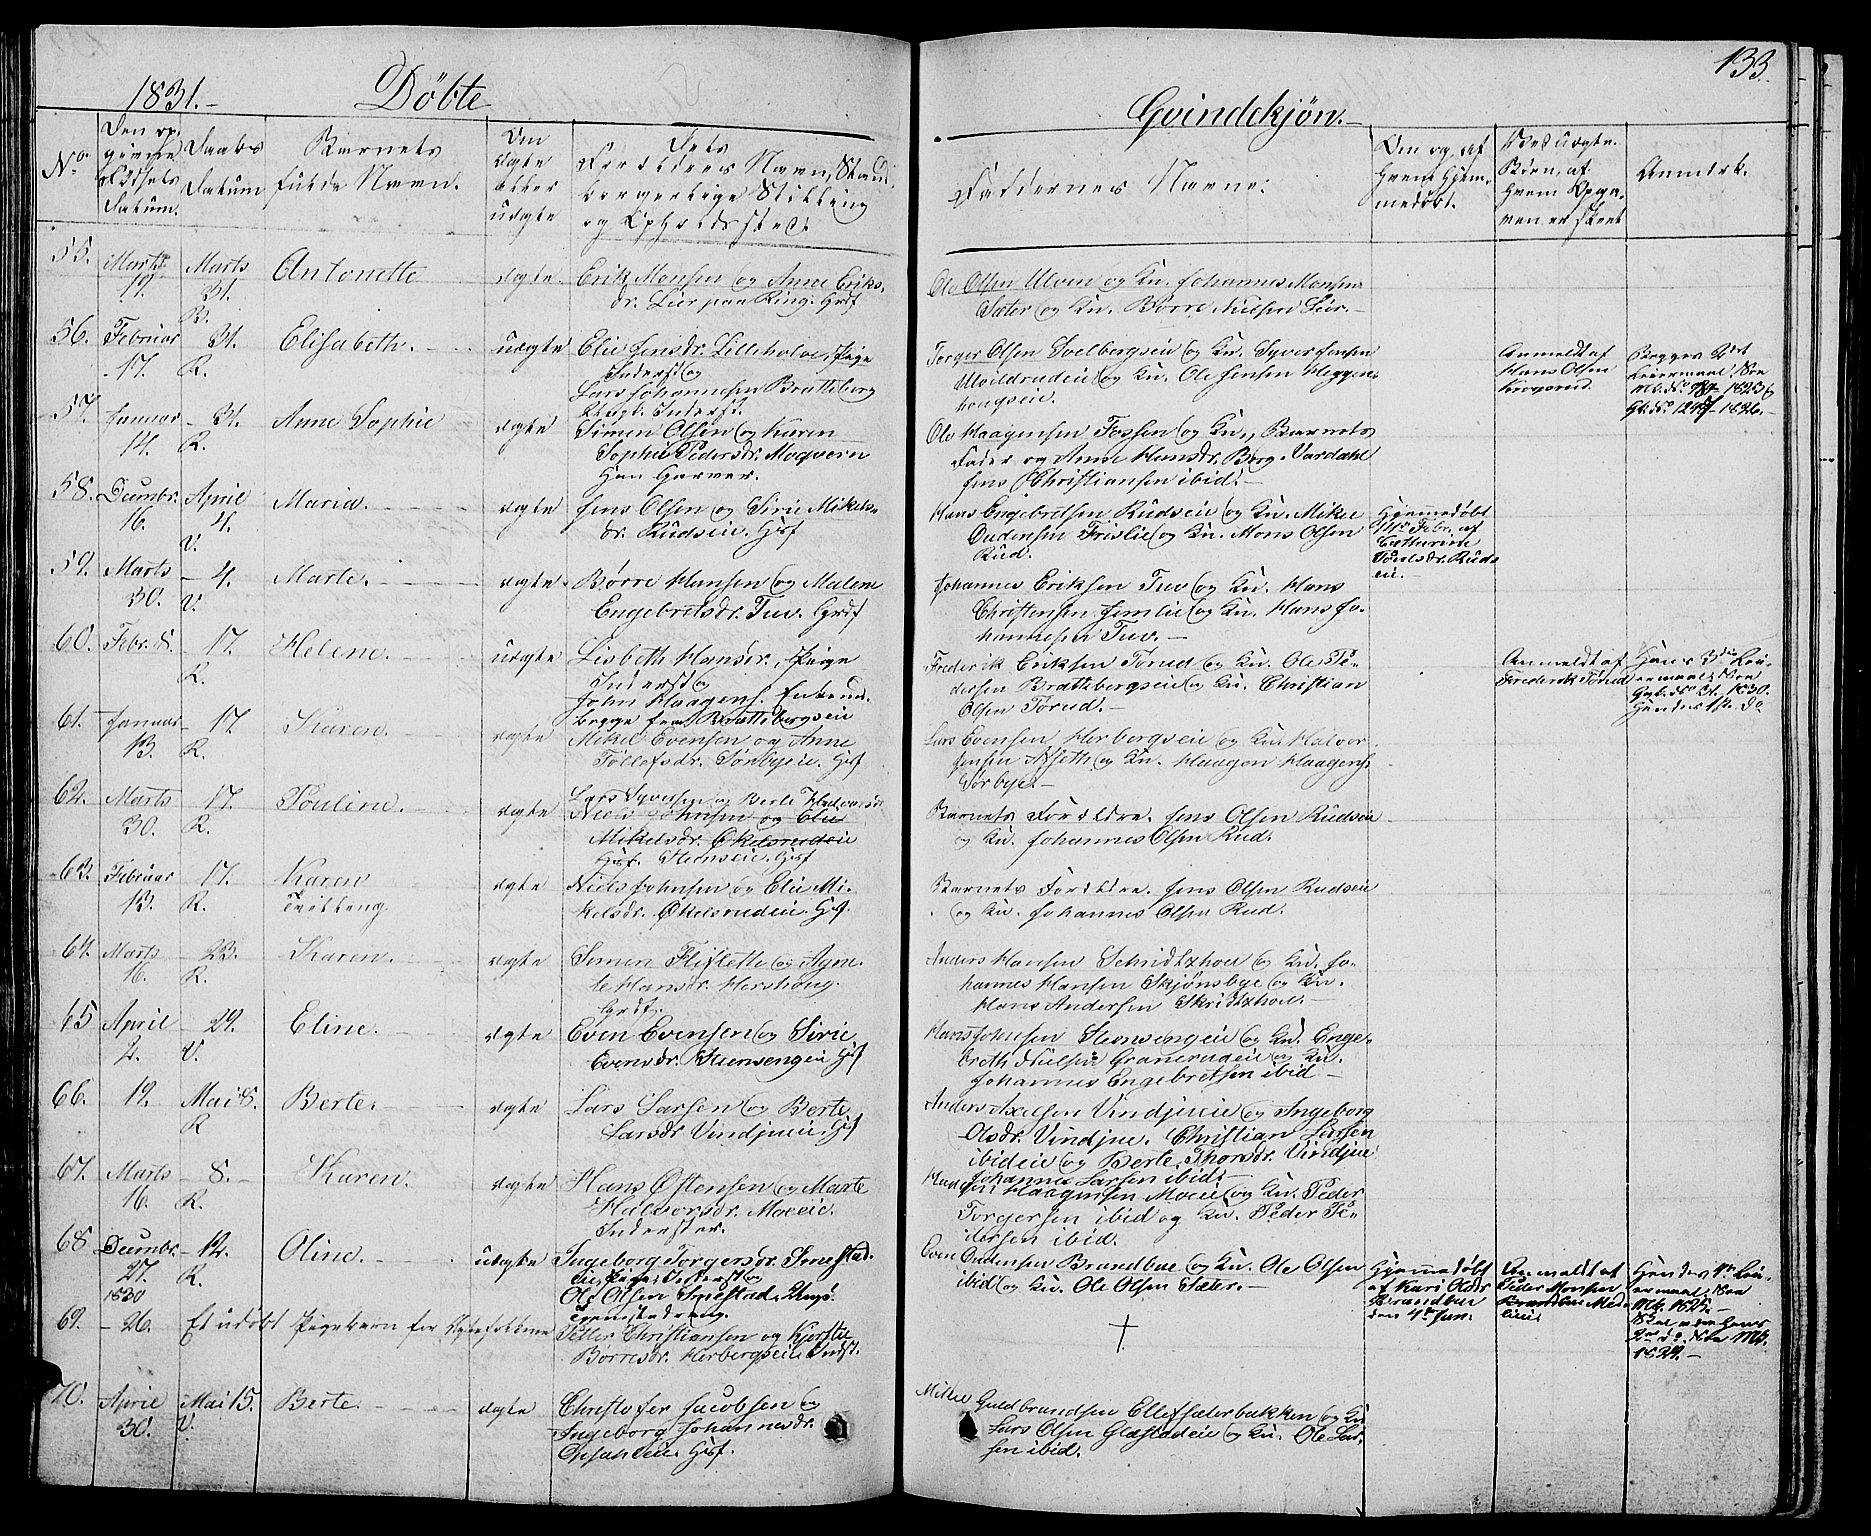 133.
1831.- Döbte
Qvindekjön.-
No
Den op,
givne
Fødsels
Datum.
Daabs
Datum
Barnets
fulde Navn.
Om
ægte
eller
uægte
Dets
Forældres Navn, Stand,
borgerlige Stilling
og Opholdssted.
Faddernes Navne.
Om og af
hvem hjem-
medøbt.
Ved uægte
Børn, af
hvem Opga-
ven er skeet
Anmærk.
55. Marts 17. Marts 31. B. Antonette ægte. Erik Monsen og Anne Eriks-
dr. Lier paa Ring. Grdf
Ole Olsen Ulven og Kn. Johannes Monsen
Sæter og Kn. Børre Nielsen Lier.-
56. Februar 17. 31. R. Elisabeth. uægte Elie Jensdr. Lilleholve, Pige
Inderst og
Lars Johannesen Bratteberg
Ungk. Inderst.
Torger Olsen Solbergseie og Kn. Syver Jensen
Ulvildrudeie og Kn. Ole Jensen Heggen-
hougseie.
Anmeldt af
Hans Olsen
Krogerud.
Begges 2det
Leiermaal.
57. Januar 14. - 31. R. Anne Sophie ægte Simen Olsen og Karen
Sophie Pedersdr. Moqvern
Han Garver.
Ole Haagensen Fossen og Kn, Barnets
Fader og Anne Hansdr. Berg. Vardahl
Jens Christiansen ibid.-
58. Decmbr. 16. April 4. V. Maria. ægte Jens Olsen og Sirie Mikels-
dr. Rudseie. Hsf
Hans Engebretsen Rudseie og Kn. Mikel
Oudensen Frislie og Kn. Mons Olsen
Rud.
Hjemmedøbt
14de Febr. af
Cathrine
Poulsdr. Ruds
eie.-
59. Marts 30. - 4. V. Marte. ægte Børre Hansen og Malene
Engebretsdr. Tuv. Grdf
Johannes Eriksen Tuv og Kn. Hans
Christensen Jemlie og Kn. Hans Jo-
hannesen Tuv.-
60. Febr. 8. - 17. R. Helene. uægte Lisbeth Hansdr. Pige
Inderst og
John Haagens. Enkem.
begge fra Brattebergseie
Frederik Eriksen Torud og Kn. Ole Pe-
dersen Brattebergseie og Kn. Christian
Olsen Torud.-
Anmeldt af
Frederik Torud
Hans 3die Lei-
ermaal,
Hendes 1ste do
61. Januar 13. - 17. R. Karen. ægte Mikel Evensen og Anne
Tollefsdr. Sørbyeie. Hsf
Lars Evensen Herbergseie og Kn. Halvor
Jensen Afseth og Kn. Haagen Haagens.
Sørbye.-
62. Marts 30. 17. R. Pouline. ægte Lars Syversen og Berte Halvorsdr
Niels Johnsen og Elie
Mikelsdr. Økelsrudeie
Hsf. Steenseie. Hsf
Barnets Forældre. Jens Olsen Rudseie
og Kn. Johannes Olsen Rud.
63. Februar 13. 17. R. Karen
Tvilling ægte Niels Johnsen og Elie Mi-
kelsdr. Økelsrudeie. Hsf.
Barnets Forældre. Jens Olsen Rudseie
og Kn. Johannes Olsen Rud.
64. Marts 16. - 23. R. Karen. ægte Simen Fliflette og Agne-
te Hansdr. Hershoug.
Grdf.
Anders Hansen Schridtzhoel og Kn. Jo-
hannes Hansen Skjønsbye og Kn.
Hans Andersen Skridtzhoel.-
65 April 2. - 29. V. Eline. ægte Even Evensen og Sirie
Evensdr. Steensengeie Hsf
Hans Johnsen Steensengeie og Kn. Enge-
breth Nielsen Granerudeie og Kn.
Johannes Engebretsen ibid -
66. 19. Mai 8. R Berte. ægte Lars Larsen og Berte
Larsdr Vindjueie. Hsf
Anders Axelsen Vindjueie og Ingeborg
Olsdr. Vindjue. Christian Larsen
ibideie og Berte Thorsdr. Vindjue
Johannes Larsen ibid.-
67. Marts 16. - 8. - R. Karen. ægte Hans Østensen og Marte
Halvorsdr. Moeeie.
Inderster.
Haagensen Moeeie og Kn. Peder
Torgersen ibid og Kn. Peder Pe-
dersen ibid.
68 Decmbr. 27. 1830 - 12. R. Oline. uægte Ingeborg Torgersdr. Smestad-
eie, Pige, Inderst og
Ole Olsen Smestad. Ungk.
Tjenestedreng.
Even Oudensen Brandbue og Kn. Ole Olsen
ibid og Kn. Ole Olsen Sæter.-
Hjemmedøbt
af Kari Olsdr
Brandbue
den 4de Jan.
Anmeldt af
Peder Monsen
Brandbue Med-
lem.
Hendes 1ste Lei-
ermaal
1825.-
Skal være hans
1829.-
69. - 26. Et udøbt Pigebarn for Ægtefolkene Peter Christiansen og Kjerstie
Børresdr. Herbergseie Indst.
†
70. April 30. Mai 15. V. Berte. ægte Christofer Jacobsen og
Ingeborg Johannesdr.
Opsahleie. Hsf.
Mikkel Guldbrandsen Ellefsæterbakken og Kn
Lars Olsen Glæstadeie og Kn. Ole Lar-
sen ibid.